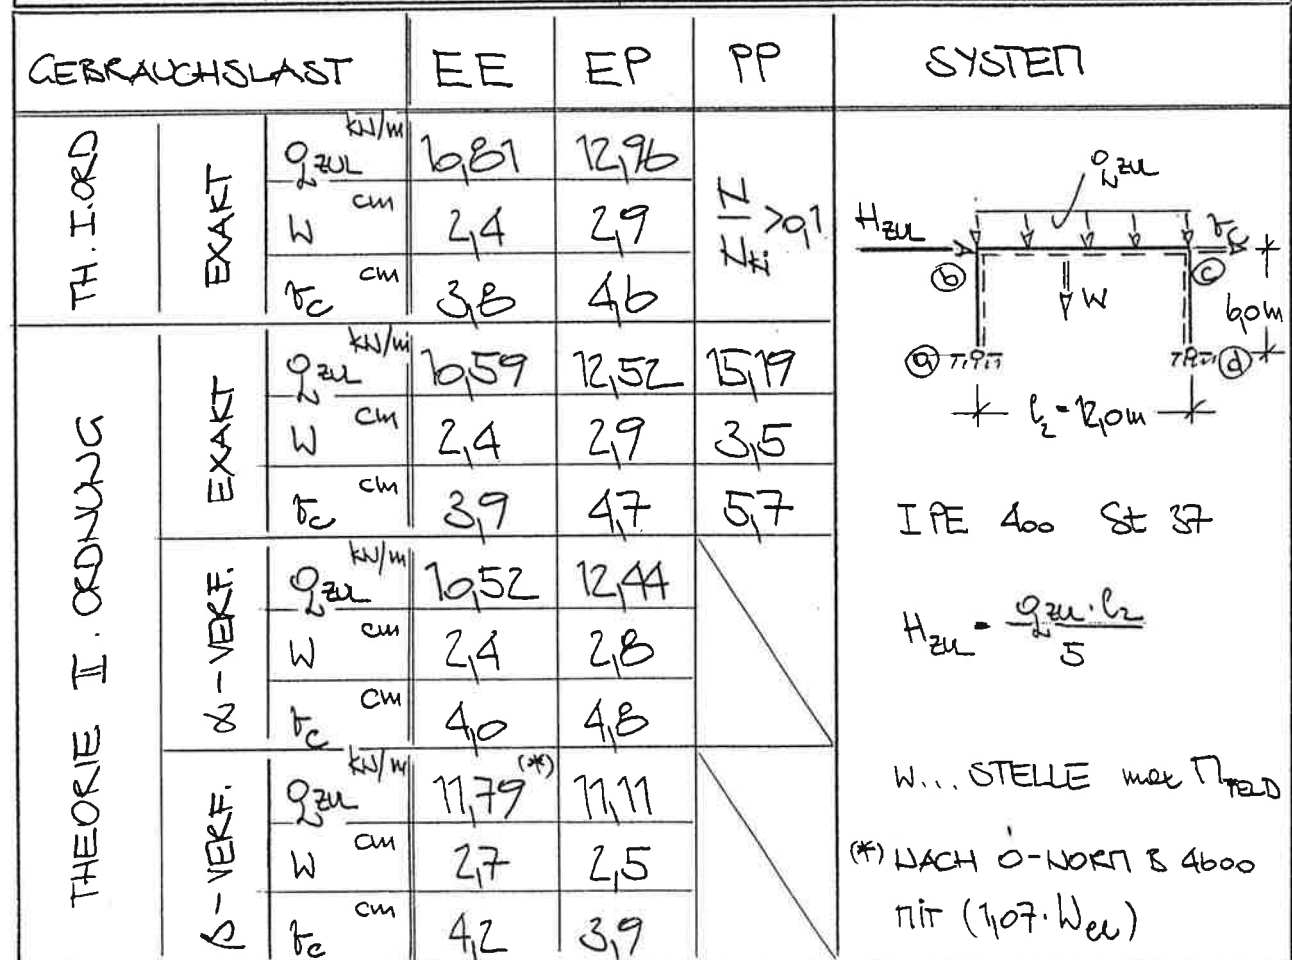 GEBRAUCHSLAST EE EP PP SYSTEM
TH. I. ORD
EXAKT
q_zul kN/m 10,81 12,96
W cm 2,4 2,9
v_c cm 3,8 4,6
N/N_ki >0,1
THEORIE II. ORDNUNG
EXAKT
q_zul kN/m 10,59 12,52 15,19
W cm 2,4 2,9 3,5
v_c cm 3,9 4,7 5,7
α-VERF.
q_zul kN/m 10,52 12,44
W cm 2,4 2,8
v_c cm 4,0 4,8
β-VERF.
q_zul kN/m 11,79 (*) 11,11
W cm 2,7 2,5
v_c cm 4,2 3,9
q_zul
H_zul
v_c
b
c
W
6,0m
a
d
l_2 = 12,0m
IPE 400 St 37
H_zul = q_zul · l_2 / 5
W... STELLE max M_FELD
(*) NACH Ö-NORM B 4600
MIT (1,07·W_el)